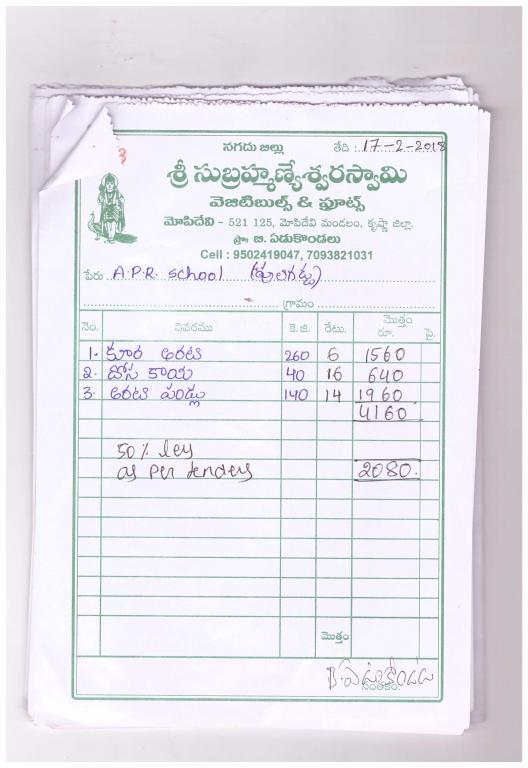 నగదు బిల్లు తేది : 17-2-2018
శ్రీ సుబ్రహ్మణ్యేశ్వరస్వామి
వెజిటిబుల్స్ & ఫ్రూట్స్
మోపిదేవి - 521 125, మోపిదేవి మండలం, కృష్ణా జిల్లా.
ప్రొ: బి. ఏడుకొండలు
Cell : 9502419047, 7093821031
పేరు A.P.R. School
గ్రామం
నెం. వివరము కె.జి. రేటు. మొత్తం రూ. పై.
1. కూర అరటి 260 6 1560
2. దోస కాయ 40 16 640
3. అరటి పండ్లు 140 14 1960
4160
50% les
as per tenders 2080.
మొత్తం
B. ఏడుకొండలు
సంతకం.